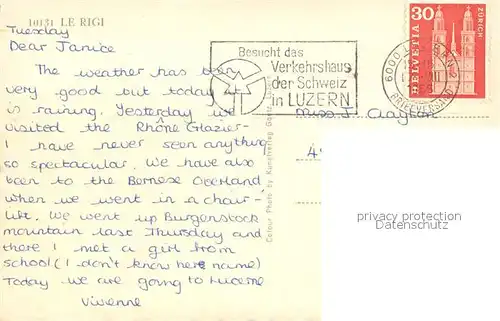 10131 LE RIGI
Tuesday
Dear Janice
The weather has been
very good but today
is raining. Yesterday we
visited the Rhône Glazier-
I have never seen anything
so spectacular. We have also
been to the Bernese Oberland,
when we went in a chair-
lift. We went up Burgenstock
mountain last Thursday and
there I met a girl from
school (I don't know here name)
Today we are going to Lucerne
Vivienne
Besucht das
Verkehrshaus
der Schweiz
in LUZERN
6000
BRIEFVERSAND
30
HELVETIA
ZÜRICH
Miss J. Clayton
4
Colour Photo by Kunstverlag
privacy protection watermark
privacy protection watermark